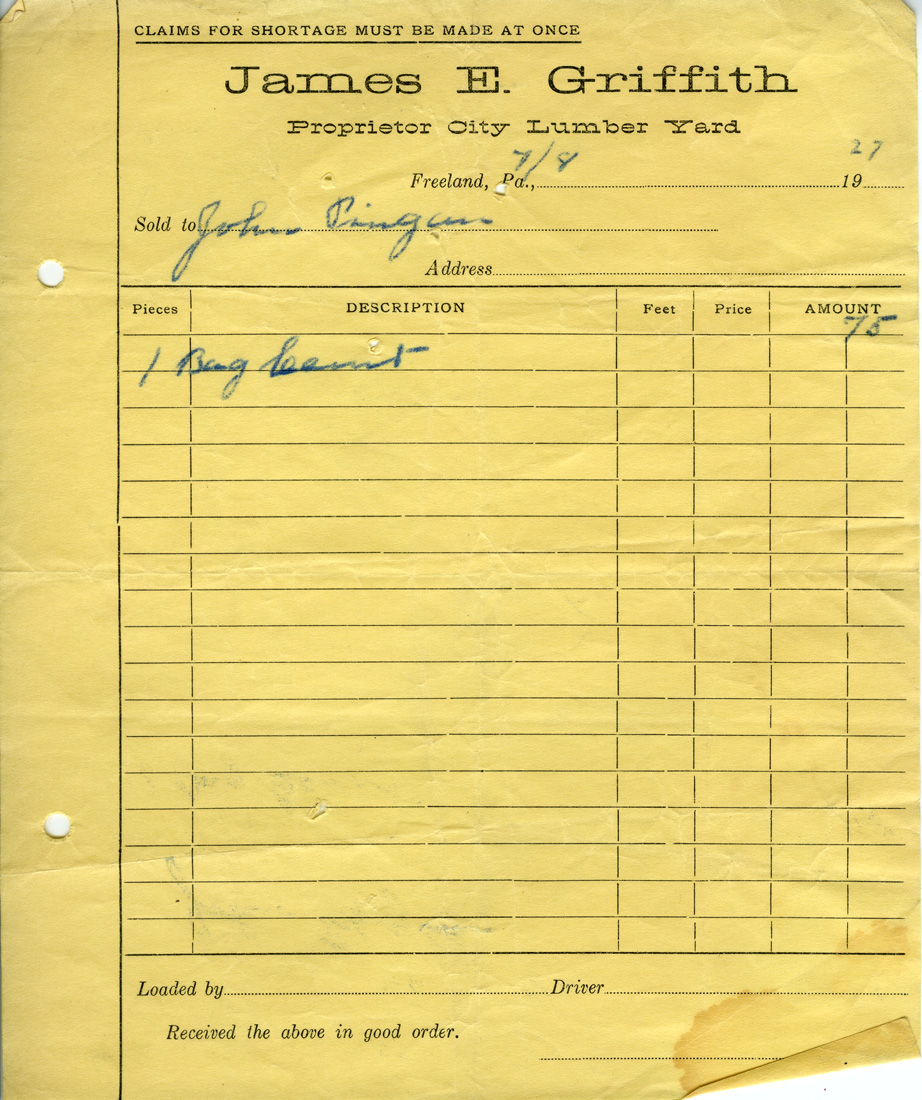 CLAIMS FOR SHORTAGE MUST BE MADE AT ONCE
James E. Griffith
Proprietor City Lumber Yard
Freeland, Pa., 7/8 1927
Sold to John Pingan
Address
Pieces DESCRIPTION Feet Price AMOUNT
1 Bag Cemt 75
Loaded by Driver
Received the above in good order.